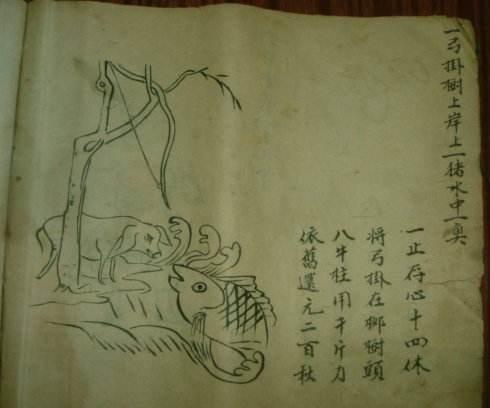 一弓掛樹上岸上一猪水中一魚
一止存心十四休
將弓掛在樹頭
八牛柱用千斤力
依舊還元二百秋